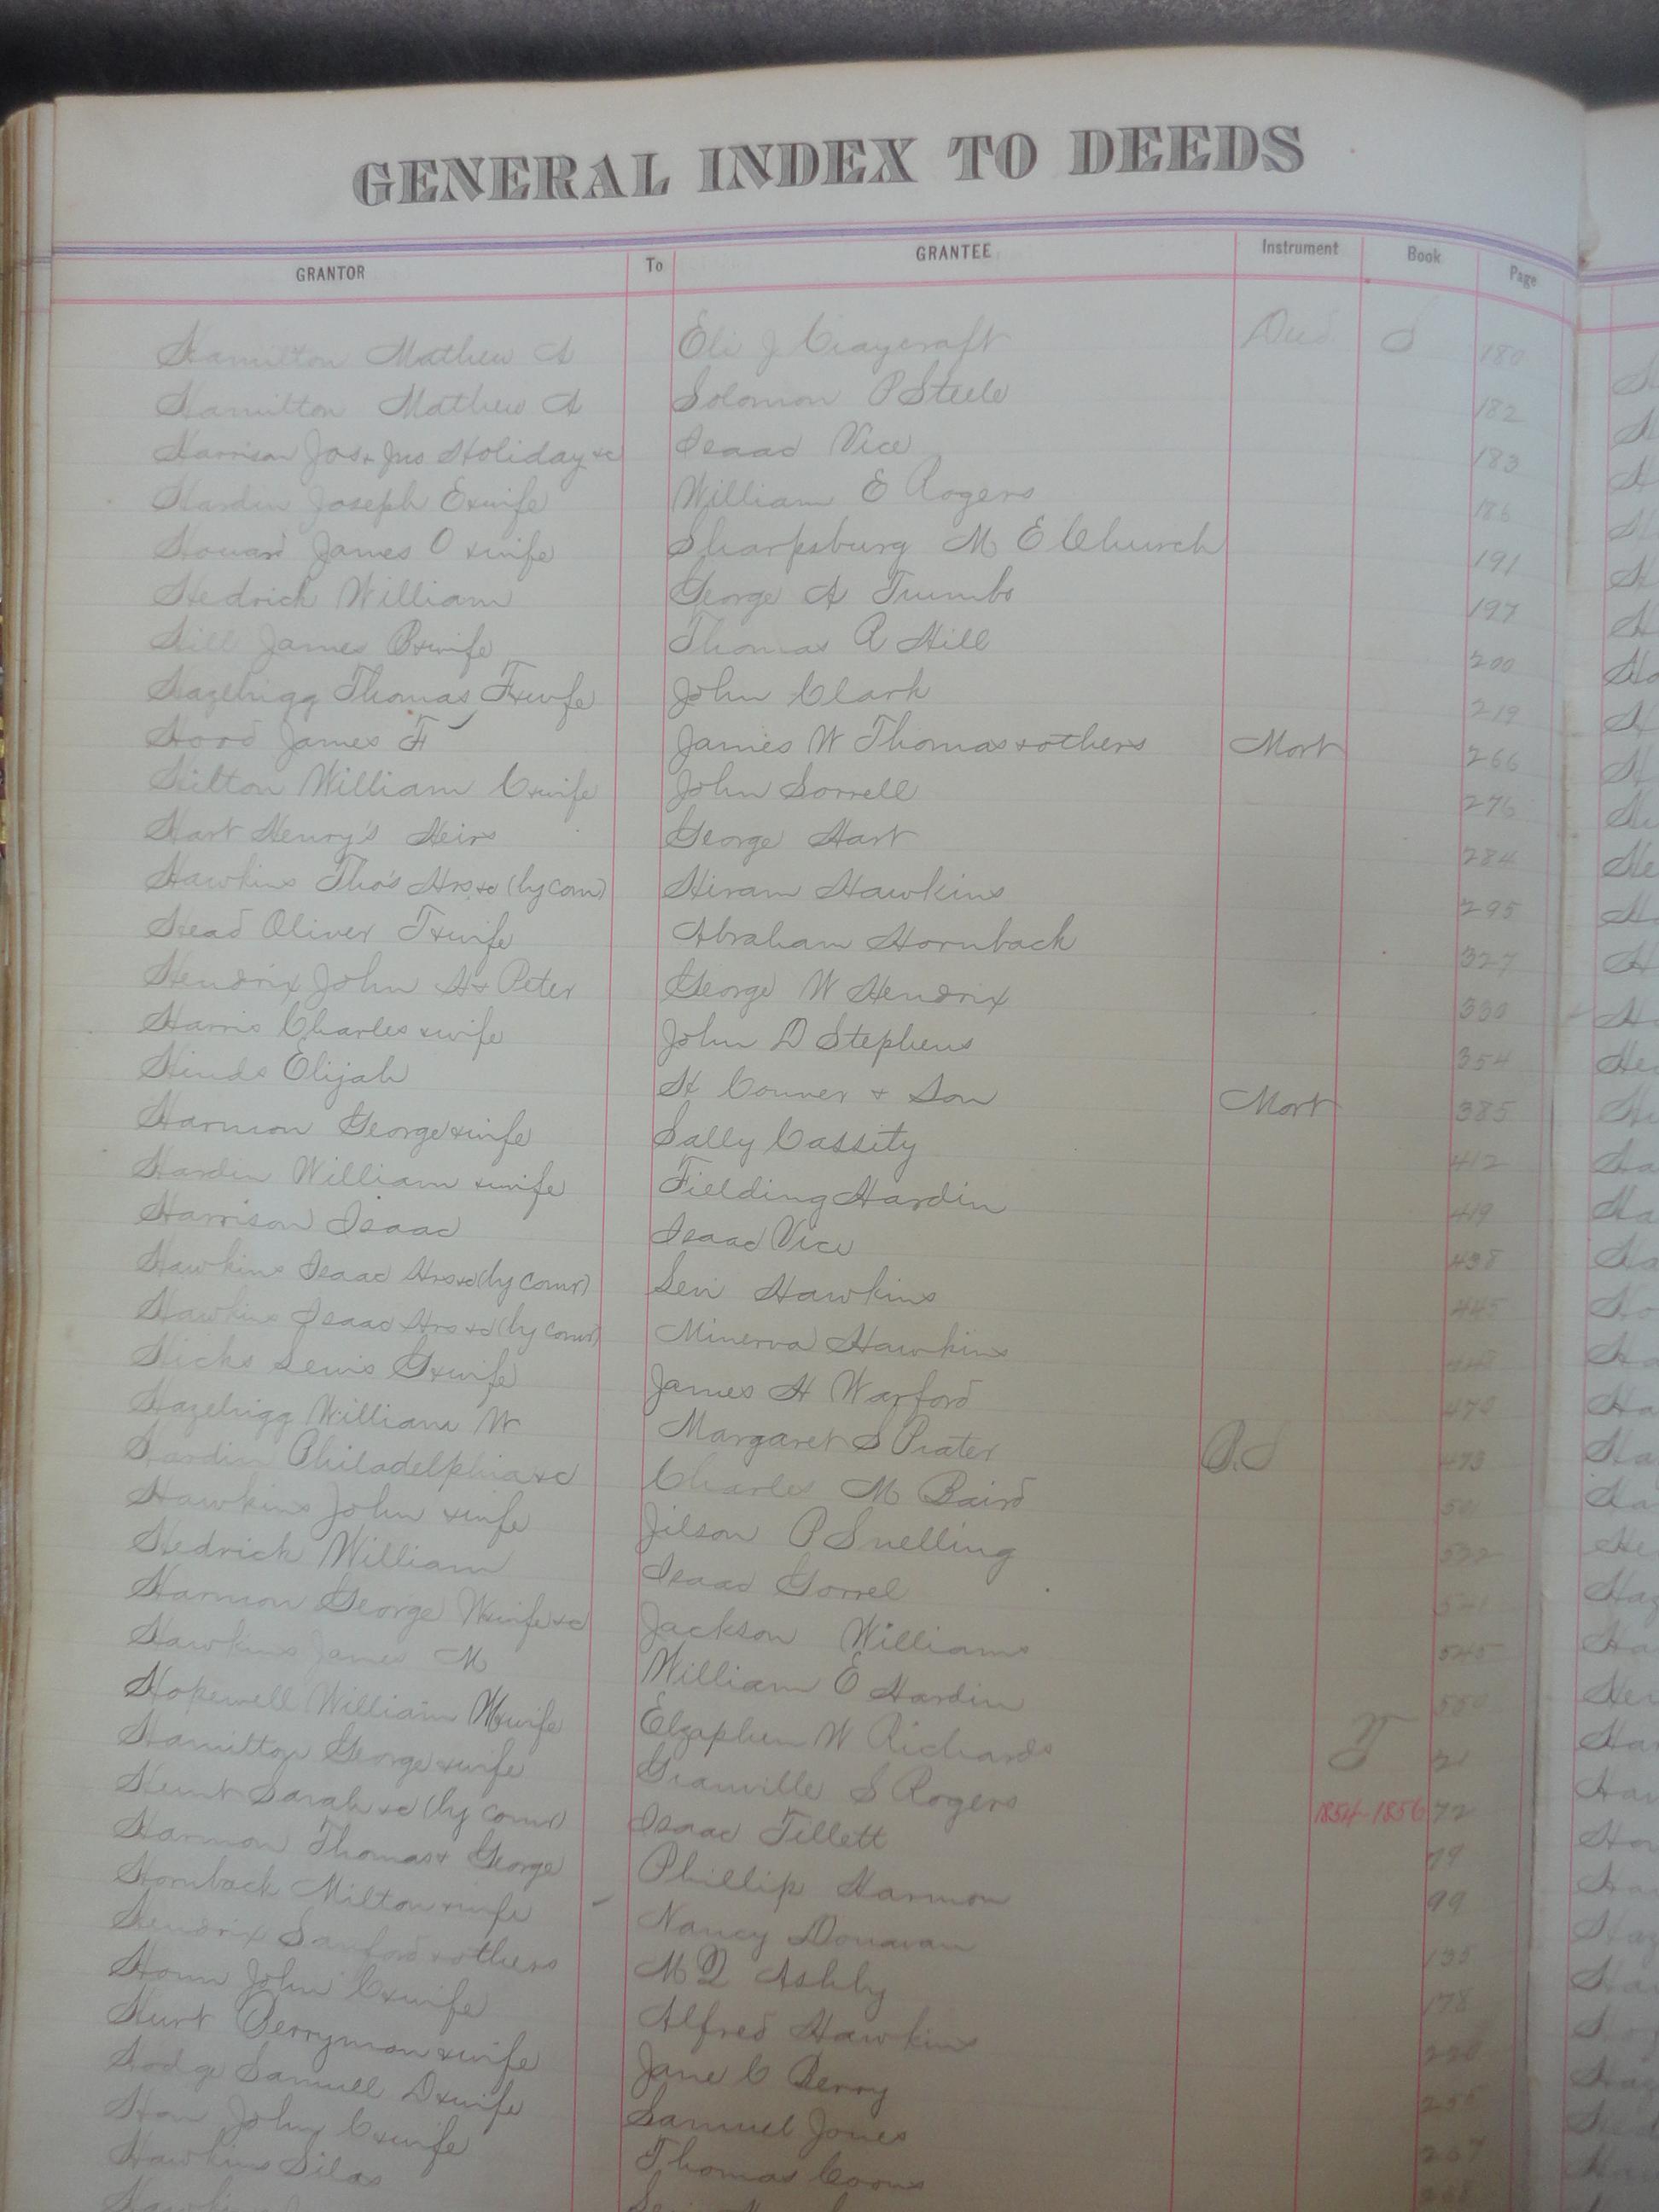 GENERAL INDEX TO DEEDS
GRANTOR To GRANTEE Instrument Book Page
Hamilton Mathew A Eli J Craycraft Deed S 180
Hamilton Mathew A Solomon P Steele 182
Harrison Jos & Jno Holiday &c Isaac Vice 183
Hardin Joseph E & wife William E Rogers 186
Howard James O & wife Sharpsburg M E Church 191
Hedrick William George A Trumbo 197
Hill James B & wife Thomas R Hill 200
Hazelrigg Thomas F & wife John Clark 219
Hood James F James W Thomas & others Mort 266
Hilton William C & wife John Sorrell 276
Hart Henry's Heirs George Hart 284
Hawkins Tho's Hrs &c (by com) Hiram Hawkins 295
Head Oliver T & wife Abraham Hornback 327
Hendrix John H & Peter George W Hendrix 330
Harris Charles & wife John D Stephens 354
Hinds Elijah H Conner & Son Mort 385
Harmon George & wife Sally Cassity 412
Hardin William & wife Fielding Hardin 419
Harrison Isaac Isaac Vice 438
Hawkins Isaac Hrs &c (by comr) Levi Hawkins 445
Hawkins Isaac Hrs &c (by comr) Minerva Hawkins 448
Hicks Lewis G & wife James H Warford
Hazelrigg William W Margaret S Prater 473
Hardin Philadelphia &c Charles M Baird 501
Hawkins John & wife Jilson P Snelling 532
Hedrick William Isaac Gorrel 541
Harmon George W & wife &c Jackson Williams 545
Hawkins James M William E Hardin 550
Hopewell William W & wife Elzaphen W Richards T 21
Hamilton George & wife Granville S Rogers 1854-1856 72
Hunt Sarah &c (by comr) Isaac Tillett 79
Harmon Thomas & George Phillip Harmon 99
Hornback Milton & wife Nancy Donavan 135
Hendrix Sanford & others M Q Ashby 178
Honn John C & wife Alfred Hawkins 250
Hurt Berryman & wife Jane C Berry 255
Hodge Samuel D & wife Samuel Jones 267
Hon John C & wife Thomas Coons 268
Hawkins Silas